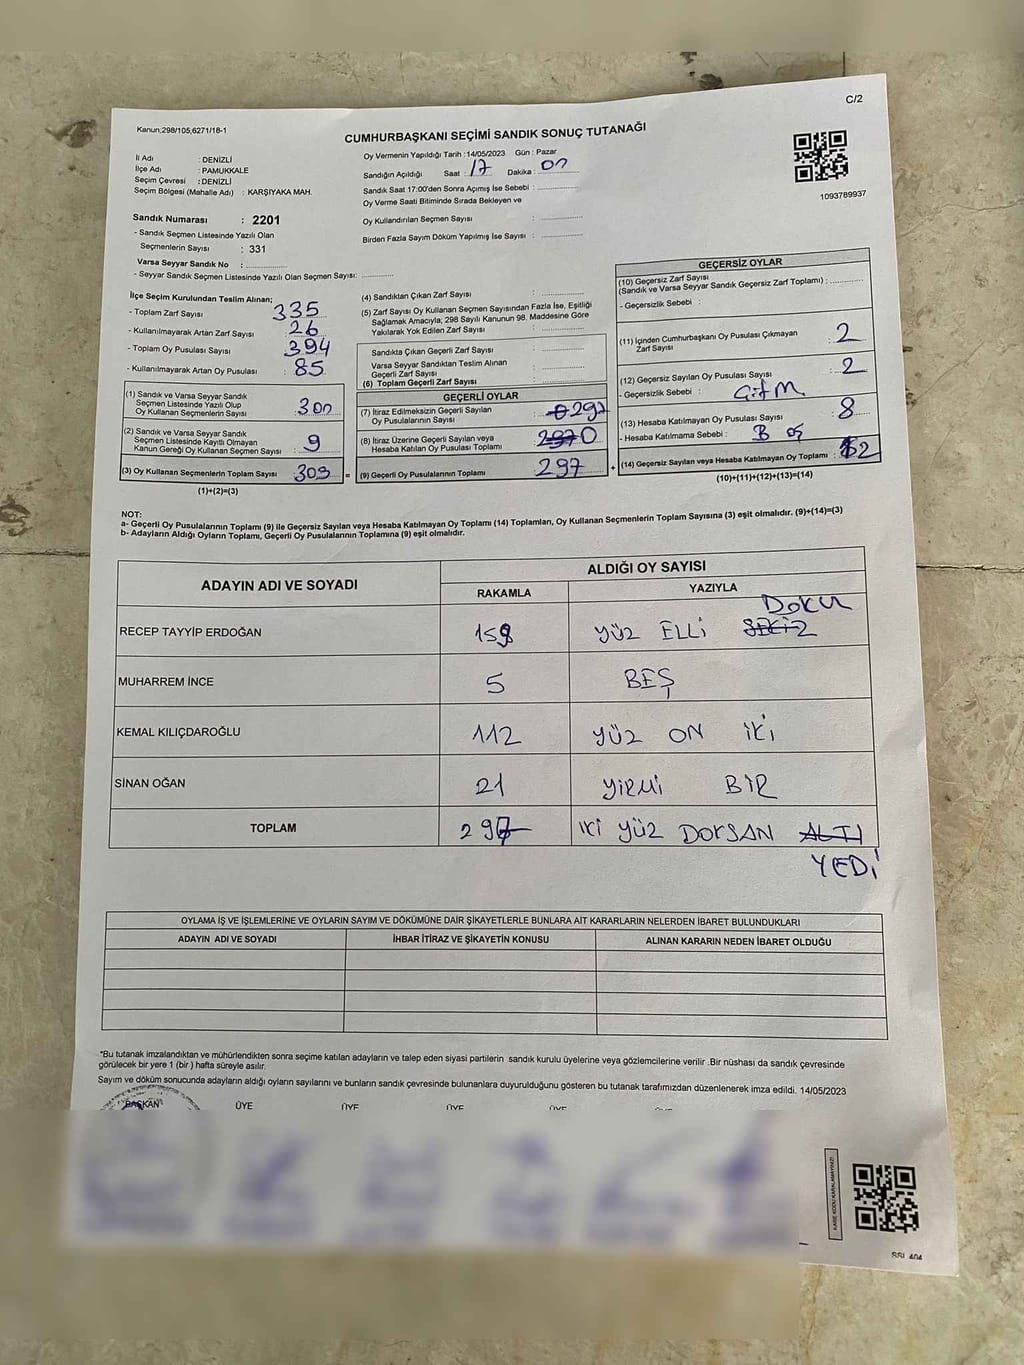 C/2
Kanun;298/105,6271/18-1
CUMHURBAŞKANI SEÇİMİ SANDIK SONUÇ TUTANAĞI
İl Adı : DENİZLİ
İlçe Adı : PAMUKKALE
Seçim Çevresi : DENİZLİ
Seçim Bölgesi (Mahalle Adı) : KARŞIYAKA MAH.
Oy Vermenin Yapıldığı Tarih :14/05/2023 Gün : Pazar
Sandığın Açıldığı Saat : 17 Dakika : 00
Sandık Saat 17:00'den Sonra Açımış İse Sebebi :
Oy Verme Saati Bitiminde Sırada Bekleyen ve
Oy Kullandırılan Seçmen Sayısı :
Birden Fazla Sayım Döküm Yapılmış İse Sayısı :
1093789937
Sandık Numarası : 2201
- Sandık Seçmen Listesinde Yazılı Olan
Seçmenlerin Sayısı : 331
Varsa Seyyar Sandık No :
- Seyyar Sandık Seçmen Listesinde Yazılı Olan Seçmen Sayısı:
İlçe Seçim Kurulundan Teslim Alınan;
- Toplam Zarf Sayısı : 335
- Kullanılmayarak Artan Zarf Sayısı : 26
- Toplam Oy Pusulası Sayısı : 394
- Kullanılmayarak Artan Oy Pusulası : 85
(1) Sandık ve Varsa Seyyar Sandık
Seçmen Listesinde Yazılı Olup
Oy Kullanan Seçmenlerin Sayısı : 300
(2) Sandık ve Varsa Seyyar Sandık
Seçmen Listesinde Kayıtlı Olmayan
Kanun Gereği Oy Kullanan Seçmen Sayısı : 9
(3) Oy Kullanan Seçmenlerin Toplam Sayısı : 309 =
(1)+(2)=(3)
(4) Sandıktan Çıkan Zarf Sayısı :
(5) Zarf Sayısı Oy Kullanan Seçmen Sayısından Fazla İse, Eşitliği
Sağlamak Amacıyla; 298 Sayılı Kanunun 98. Maddesine Göre
Yakılarak Yok Edilen Zarf Sayısı :
Sandıkta Çıkan Geçerli Zarf Sayısı :
Varsa Seyyar Sandıktan Teslim Alınan
Geçerli Zarf Sayısı :
(6) Toplam Geçerli Zarf Sayısı :
GEÇERLİ OYLAR
(7) İtiraz Edilmeksizin Geçerli Sayılan
Oy Pusulalarının Sayısı : 0 297
(8) İtiraz Üzerine Geçerli Sayılan veya
Hesaba Katılan Oy Pusulası Toplamı : 297 0
(9) Geçerli Oy Pusulalarının Toplamı : 297 +
GEÇERSİZ OYLAR
(10) Geçersiz Zarf Sayısı
(Sandık ve Varsa Seyyar Sandık Geçersiz Zarf Toplamı) :
- Geçersizlik Sebebi :
(11) İçinden Cumhurbaşkanı Oy Pusulası Çıkmayan
Zarf Sayısı : 2
(12) Geçersiz Sayılan Oy Pusulası Sayısı : 2
- Geçersizlik Sebebi :
(13) Hesaba Katılmayan Oy Pusulası Sayısı : 8
- Hesaba Katılmama Sebebi : Boş
(14) Geçersiz Sayılan veya Hesaba Katılmayan Oy Toplamı : 12
(10)+(11)+(12)+(13)=(14)
NOT:
a- Geçerli Oy Pusulalarının Toplamı (9) ile Geçersiz Sayılan veya Hesaba Katılmayan Oy Toplamı (14) Toplamları, Oy Kullanan Seçmenlerin Toplam Sayısına (3) eşit olmalıdır. (9)+(14)=(3)
b- Adayların Aldığı Oyların Toplamı, Geçerli Oy Pusulalarının Toplamına (9) eşit olmalıdır.
ADAYIN ADI VE SOYADI ALDIĞI OY SAYISI
RAKAMLA YAZIYLA
RECEP TAYYİP ERDOĞAN 159 YÜZ ELLİ SEKİZ DOKUZ
MUHARREM İNCE 5 BEŞ
KEMAL KILIÇDAROĞLU 112 YÜZ ON İKİ
SİNAN OĞAN 21 YİRMİ BİR
TOPLAM 297 İKİ YÜZ DOKSAN ALTI
YEDİ
OYLAMA İŞ VE İŞLEMLERİNE VE OYLARIN SAYIM VE DÖKÜMÜNE DAİR ŞİKAYETLERLE BUNLARA AİT KARARLARIN NELERDEN İBARET BULUNDUKLARI
ADAYIN ADI VE SOYADI İHBAR İTİRAZ VE ŞİKAYETİN KONUSU ALINAN KARARIN NEDEN İBARET OLDUĞU
*Bu tutanak imzalandıktan ve mühürlendikten sonra seçime katılan adayların ve talep eden siyasi partilerin sandık kurulu üyelerine veya gözlemcilerine verilir .Bir nüshası da sandık çevresinde
görülecek bir yere 1 (bir ) hafta süreyle asılır.
Sayım ve döküm sonucunda adayların aldığı oyların sayılarını ve bunların sandık çevresinde bulunanlara duyurulduğunu gösteren bu tutanak tarafımızdan düzenlenerek imza edildi. 14/05/2023
BAŞKAN ÜYE ÜYE ÜYE ÜYE